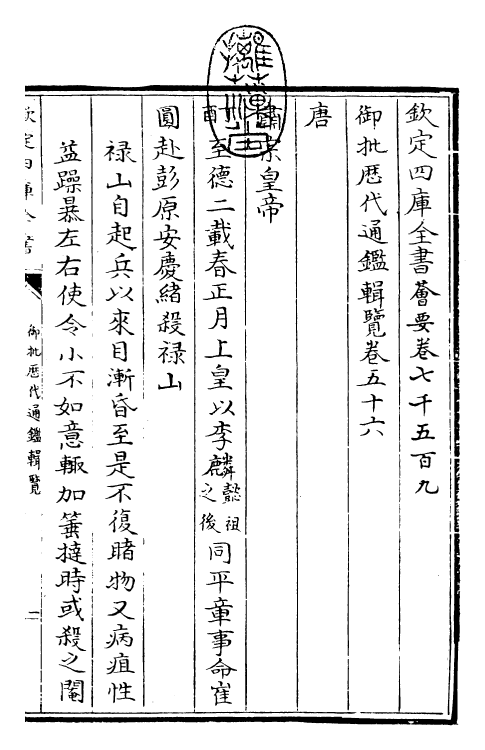 欽定四庫全書薈要卷七千五百九
御批歷代通鑑輯覽卷五十六
唐
肅宗皇帝
酉至德二載春正月上皇以李麟懿祖之後同平章事命崔
圓赴彭原安慶緒殺禄山
禄山自起兵以來目漸昏至是不復睹物又病疽性
益躁暴左右使令小不如意輙加箠撻時或殺之閹
欽定四庫全書
御批歷代通鑑輯覽